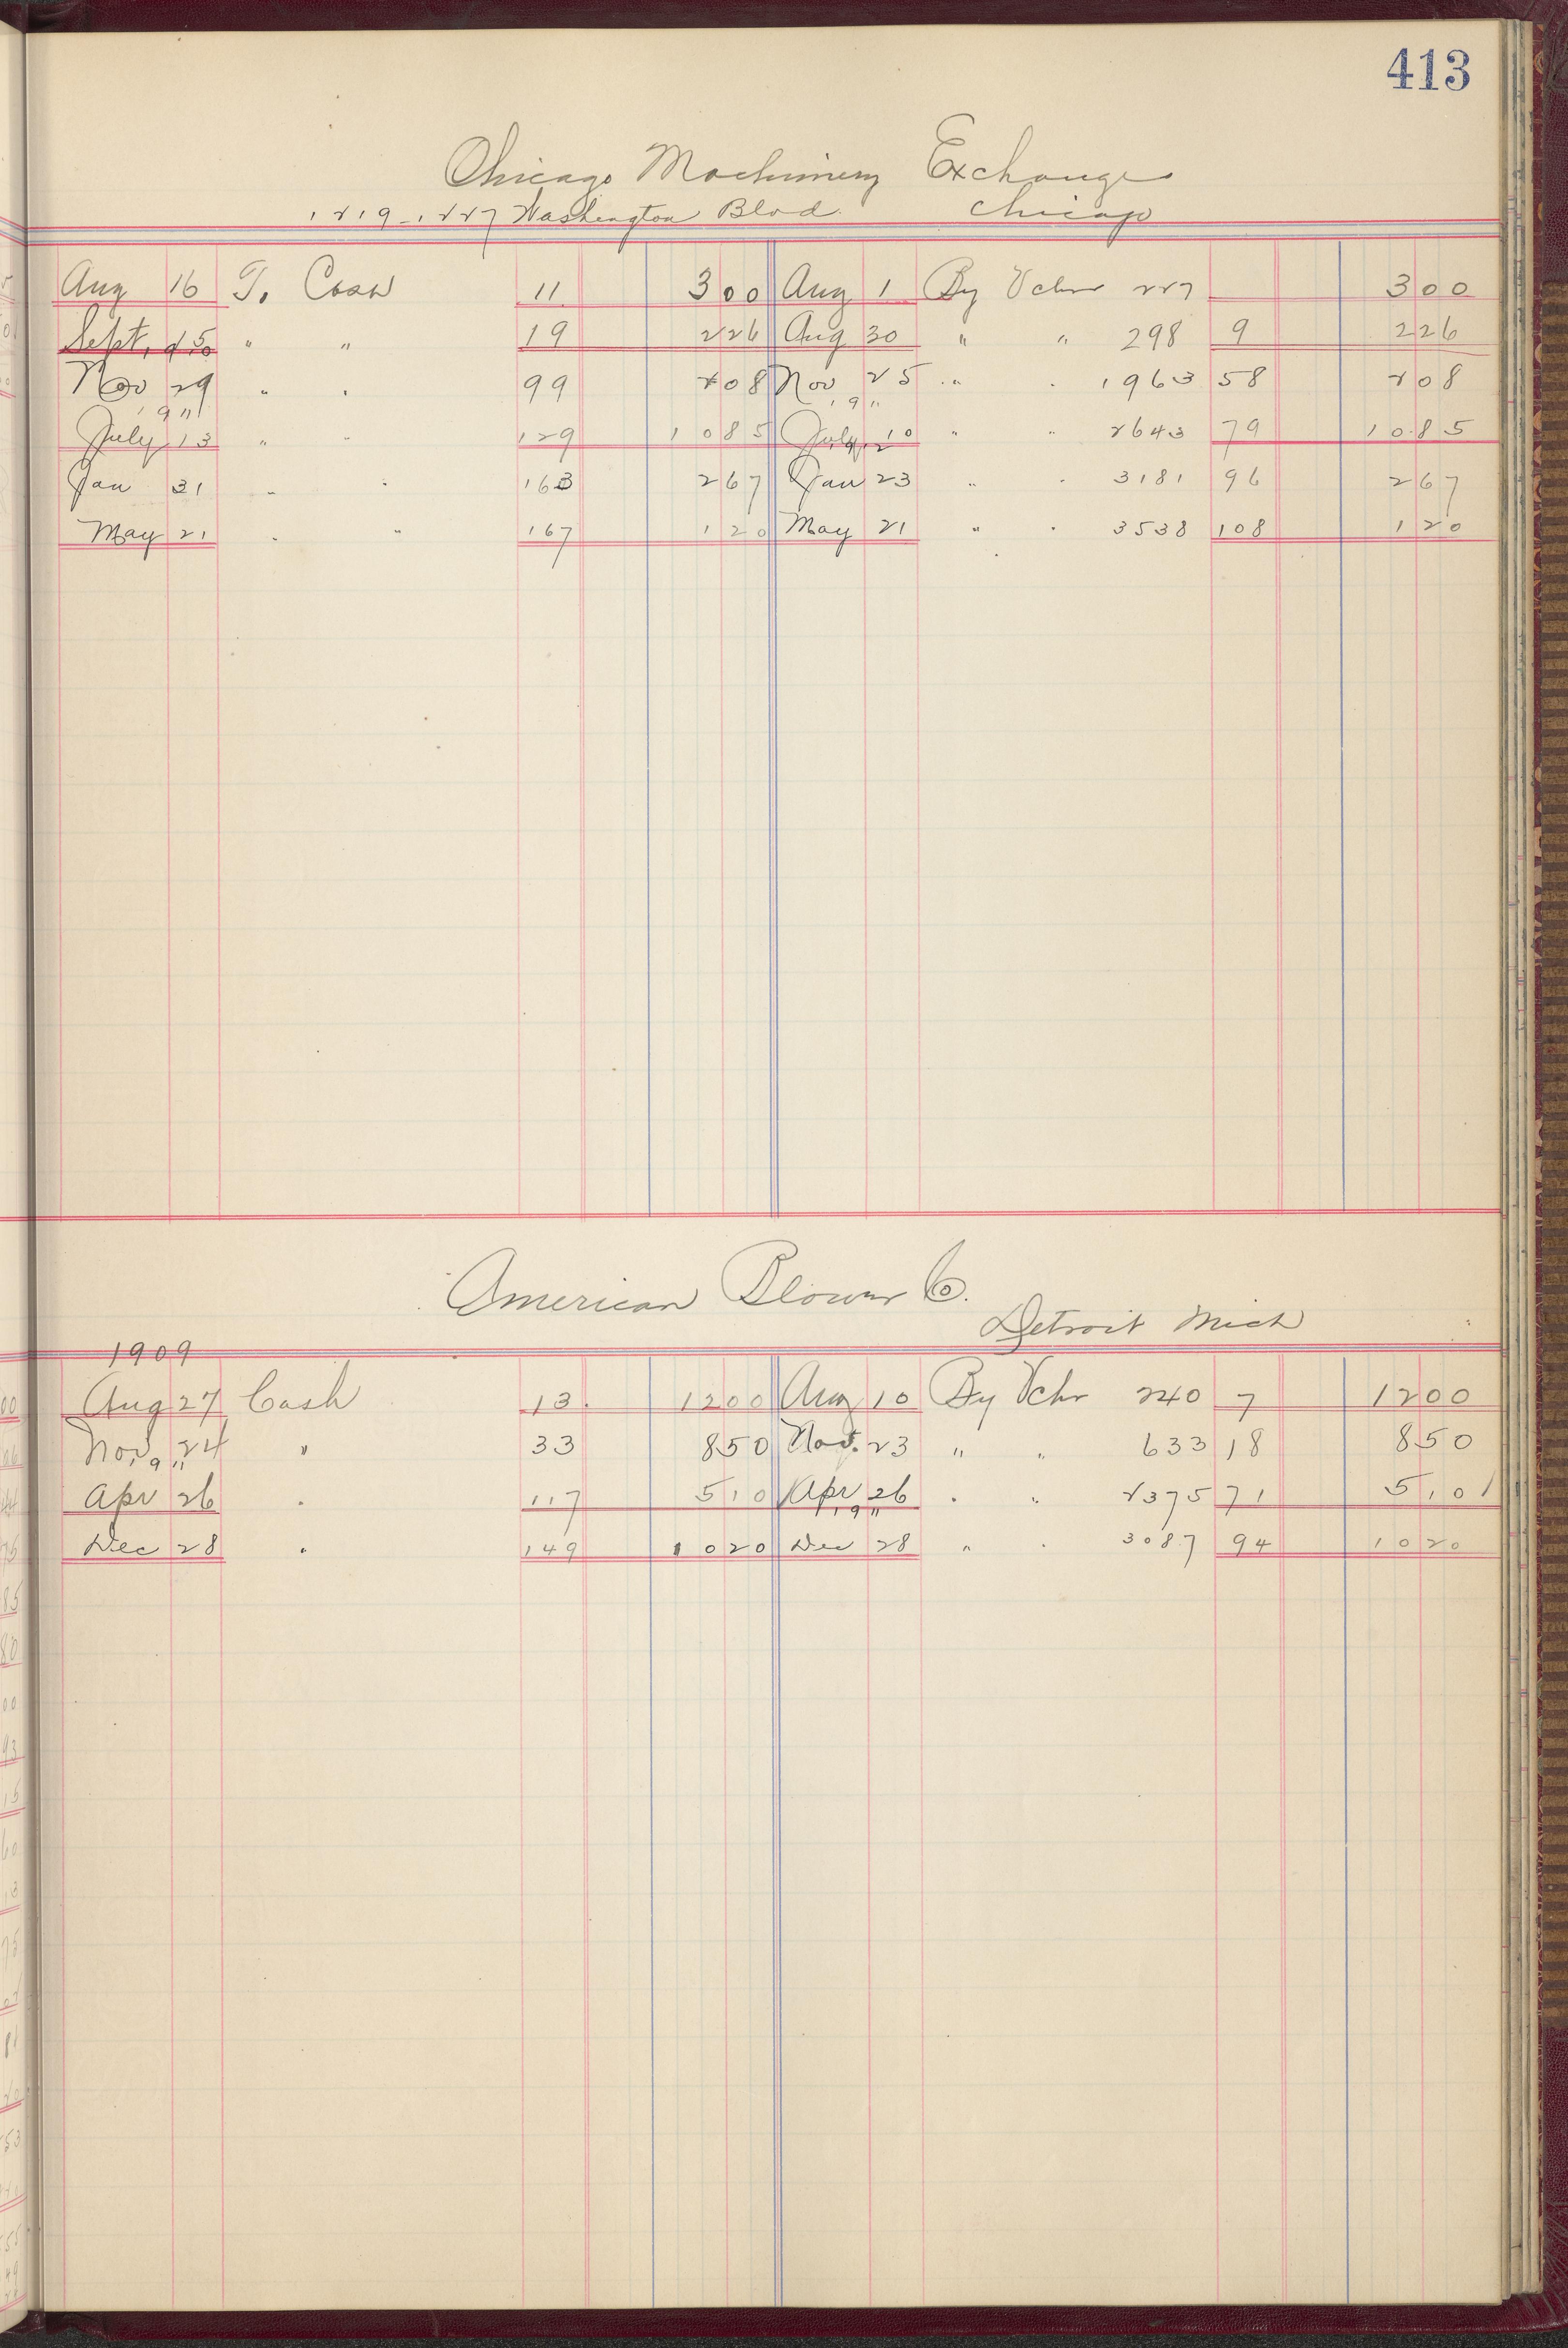 413
Chicago Machinery Exchange
1219-1227 Washington Blvd. Chicago
Aug 16 To Cash 11 300 Aug 1 By Vchr 227 300
Sept, 15 " " 19 226 Aug 30 " " 298 9 226
Nov 29 " " 99 208 Nov 25 " " 1963 58 208
1911 1911
July 13 " " 129 1085 July 10 " " 2643 79 1085
Jan 31 " " 163 267 Jan 23 " " 3181 96 267
May 21 " " 167 120 May 21 " " 3538 108 120
American Blower Co.
Detroit Mich
1909
Aug 27 Cash 13 1200 Aug 10 By Vchr 240 7 1200
Nov, 24 " 33 850 Nov. 23 " " 633 18 850
1911
Apr 26 " 117 510 Apr 26 " " 2375 71 510
1911
Dec 28 " 149 1020 Dec 28 " " 3087 94 1020